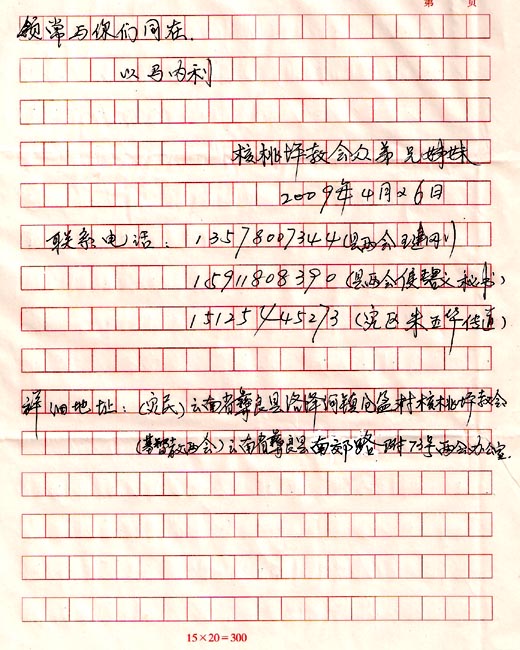 第 页
领常与你们同在.
以马内利
核桃坪教会众弟兄姊妹
2009年4月26日
联系电话: 13578097344(县两会王建
15911808390(县两会侯 秘书)
15125445273 (灾区朱玉华传道)
详细地址: (灾民)云南省彝良县洛泽河镇仓盈村核桃坪教会
(基督教两会)云南省彝良县南郊路附73号两会办公室.
15×20=300